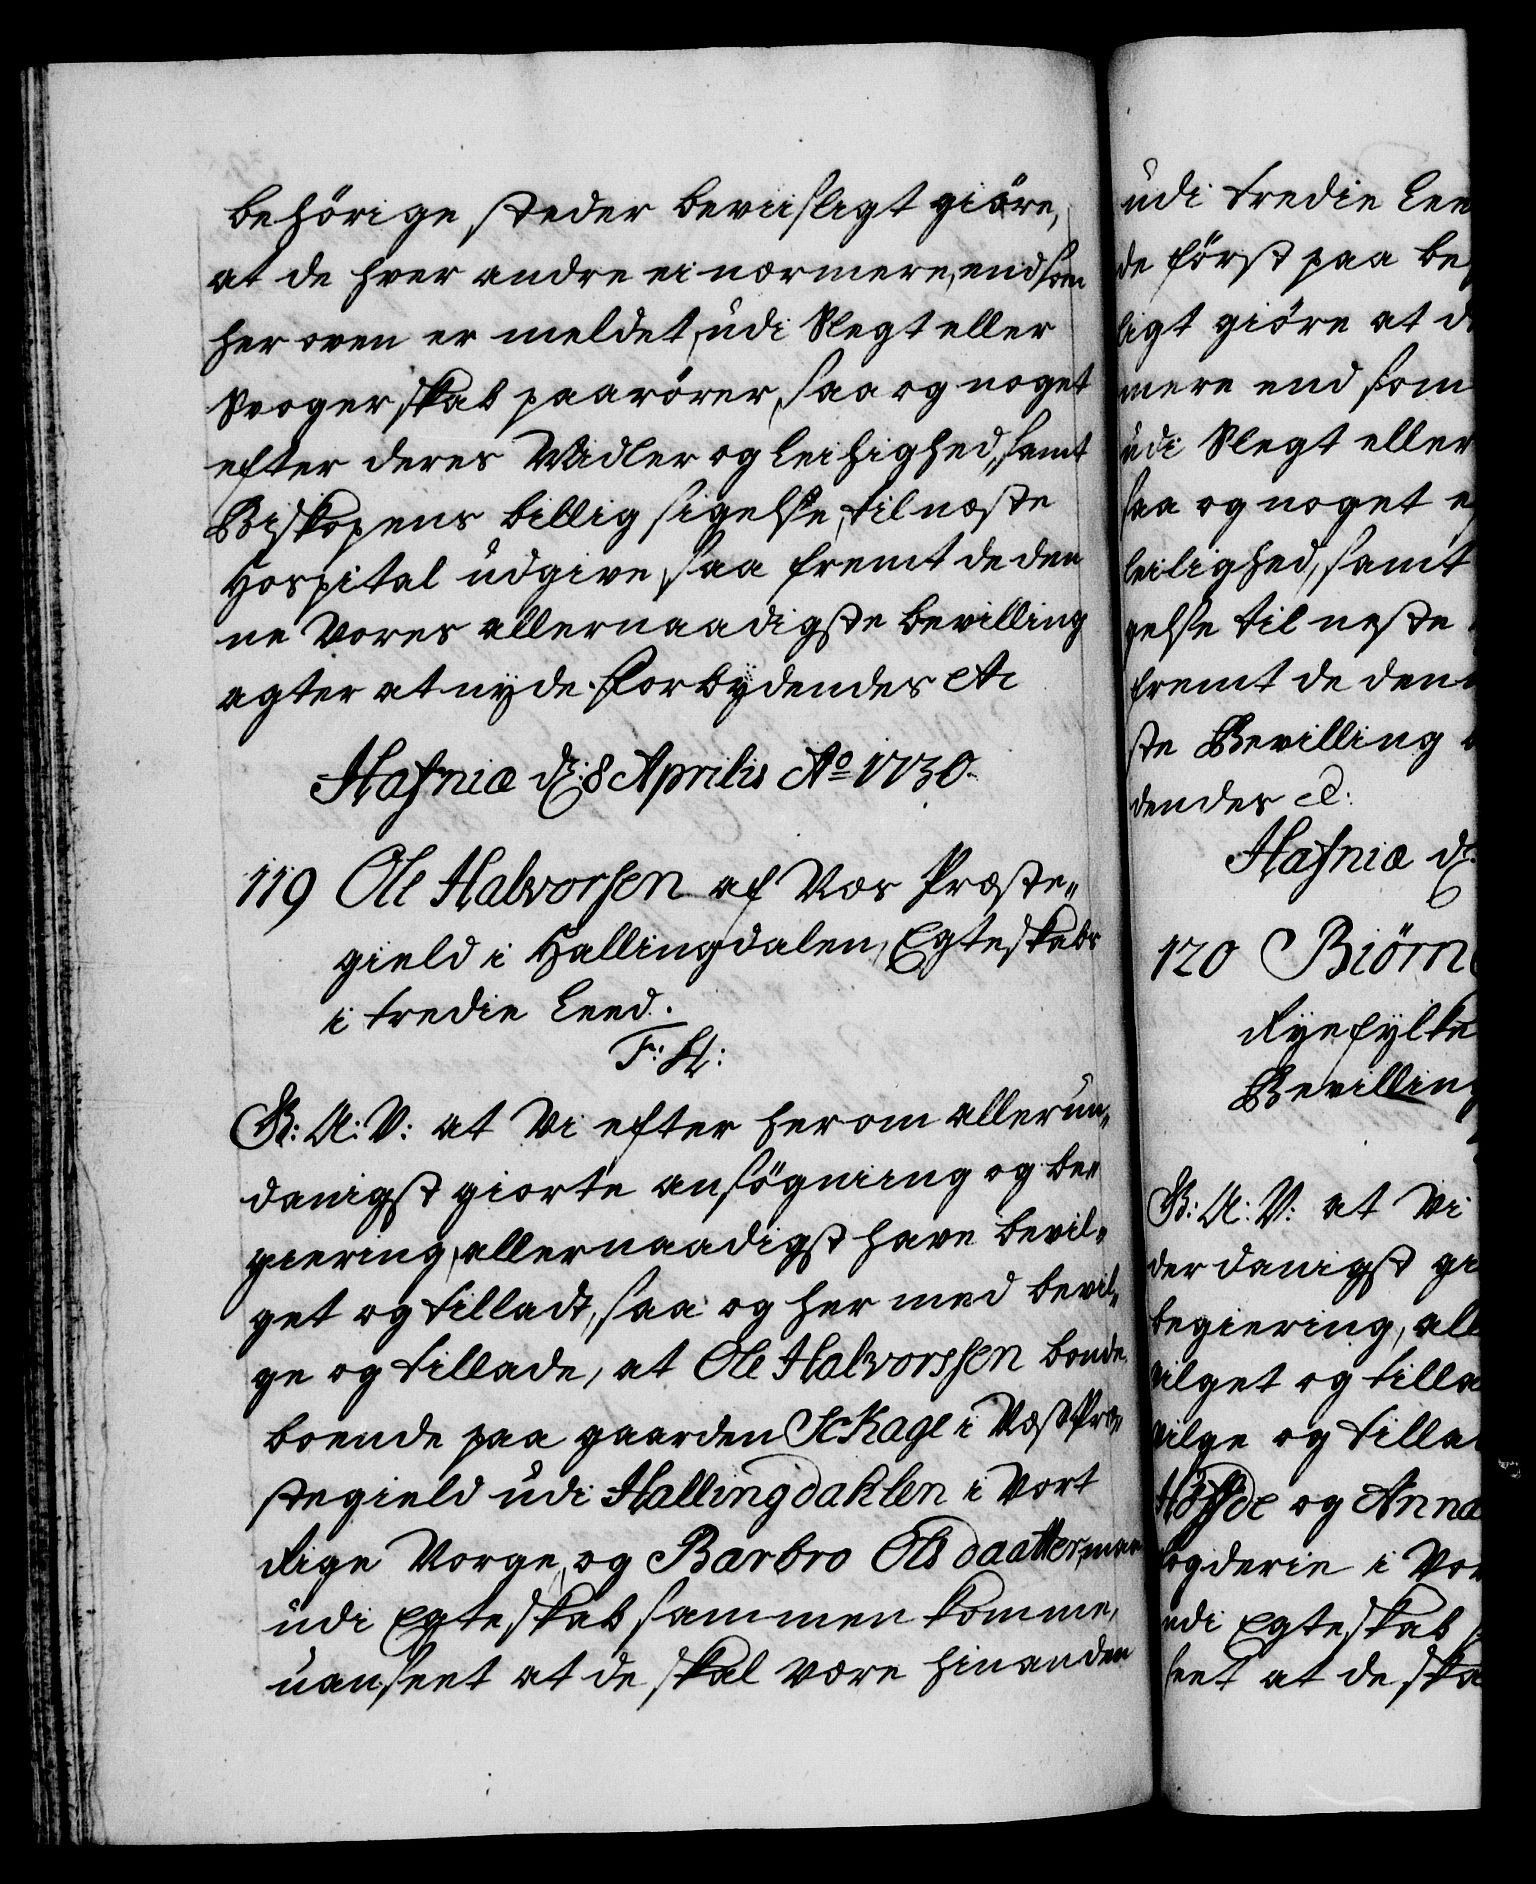 behörige steder beviisligt giöre,
at de hver andre ei nærmere, end som
her oven er meldet, udi Slegt eller
Svogerskab paarörer, saa og noget
efter deres Midler og leilighed, samt
Biskopens billig sigelse, til næste
Hospital udgive, saa fremt de den
ne Vores allernaadigste bevilling
agter at nyde. Forbydendes etc
Hafniæ d: 8 Aprilis Ao 1730.
119 Ole Halvorsen af Næs Præste„
gield i Hallingdalen, Egteskabs
i tredie Leed.
F: St:
G: A: V: at Vi efter herom allerun„
danigst giorte ansögning og be„
giering, allernaadigst have bevil„
get og tilladt, saa og her med bevil„
ge og tillade, at Ole Halvorssen bonde
boende paa gaarden i Næs Præ„
stegield udi Hallingdahlen i Vort
Rige Norge, og Barbro Olsdaatter, maa
udi Egteskab sammen komme,
uanseet at de skal være hinanden
udi tredie Lee
de först paa be
ligt giöre at d
mere end som
udi Slegt eller
saa og noget e
leilighed, samt
gelse til neste
fremt de den
ste Bevilling
dendes etc:
Hafniæ d:
120 Biörn
Ryefylke
Bevilling
G: A: V: at Vi
derdanigst gi
begiering, all
vilget og tilla
vilge og tilla
og Anna
fogderie i Vor
udi Egteskab
seet at de ska